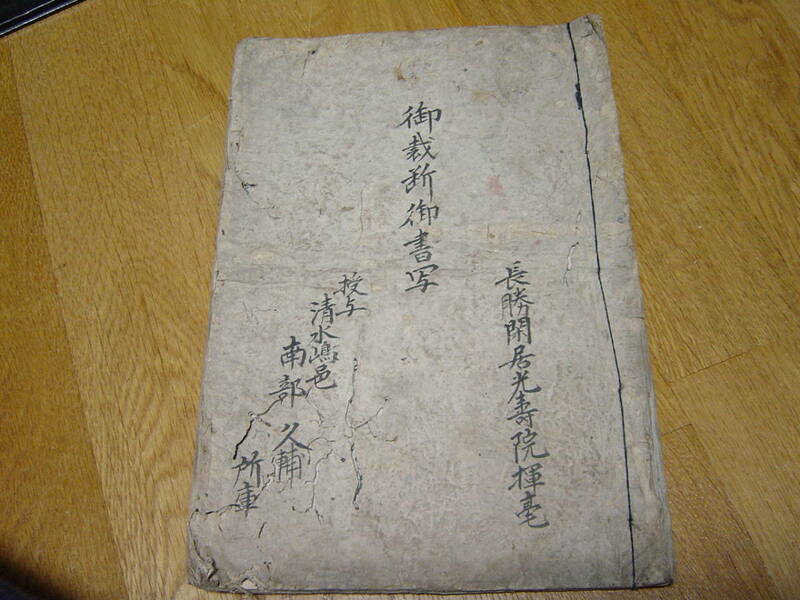 長勝閑居光壽院揮毫
御裁断御書写
授与
清水嶋邑
南部久輔
所庫